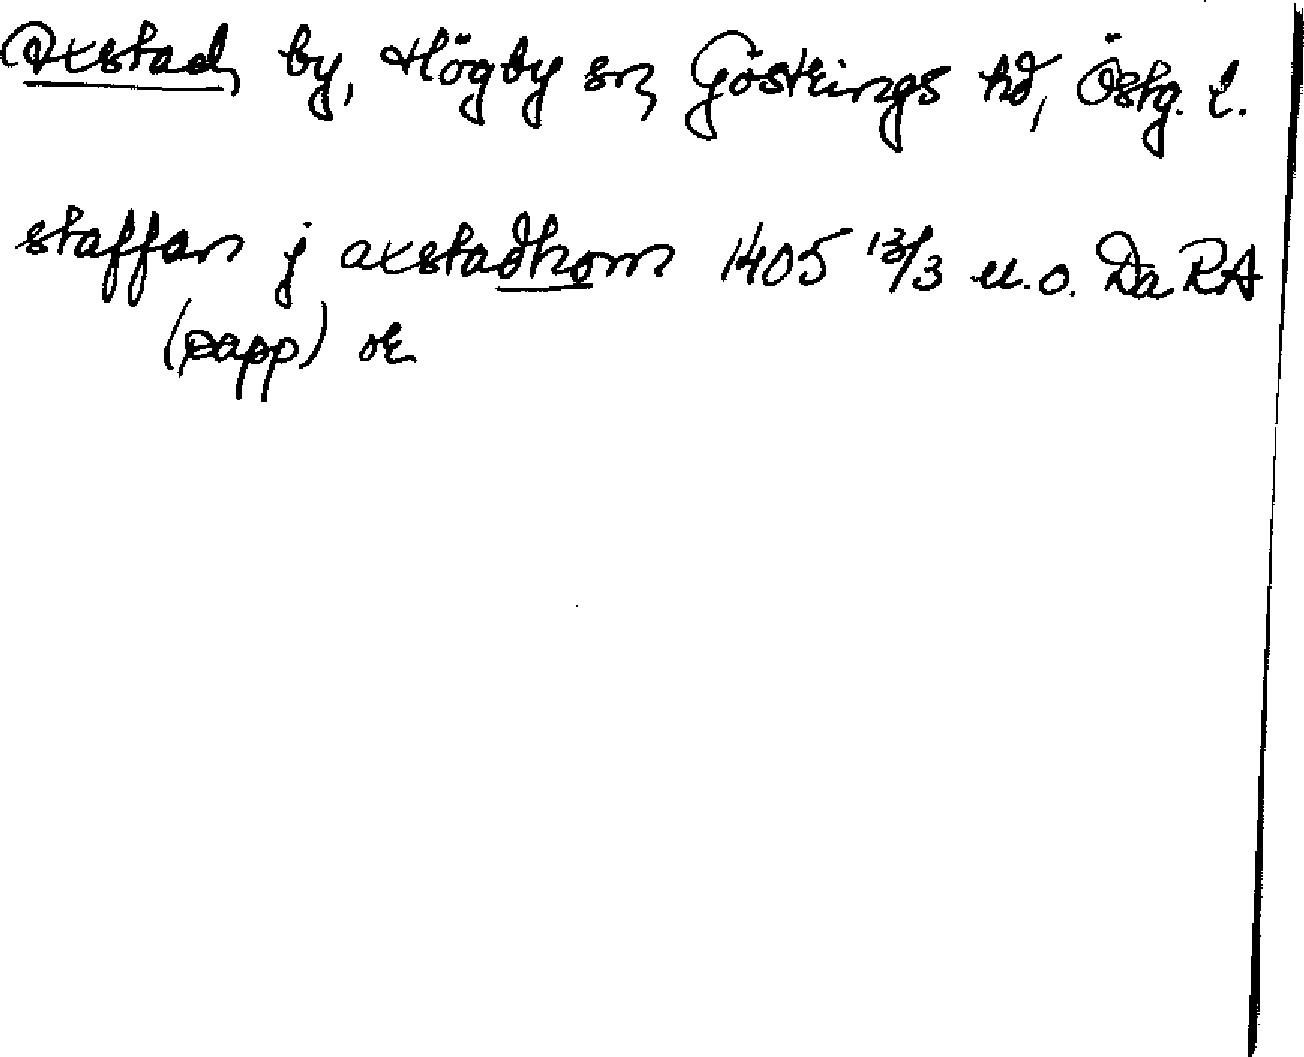 Axstad, by, Högby sn, Göstrings hd, Östg. l.
staffan j axstadhom 1405 13/3 u.o. Da RA
(papp) or